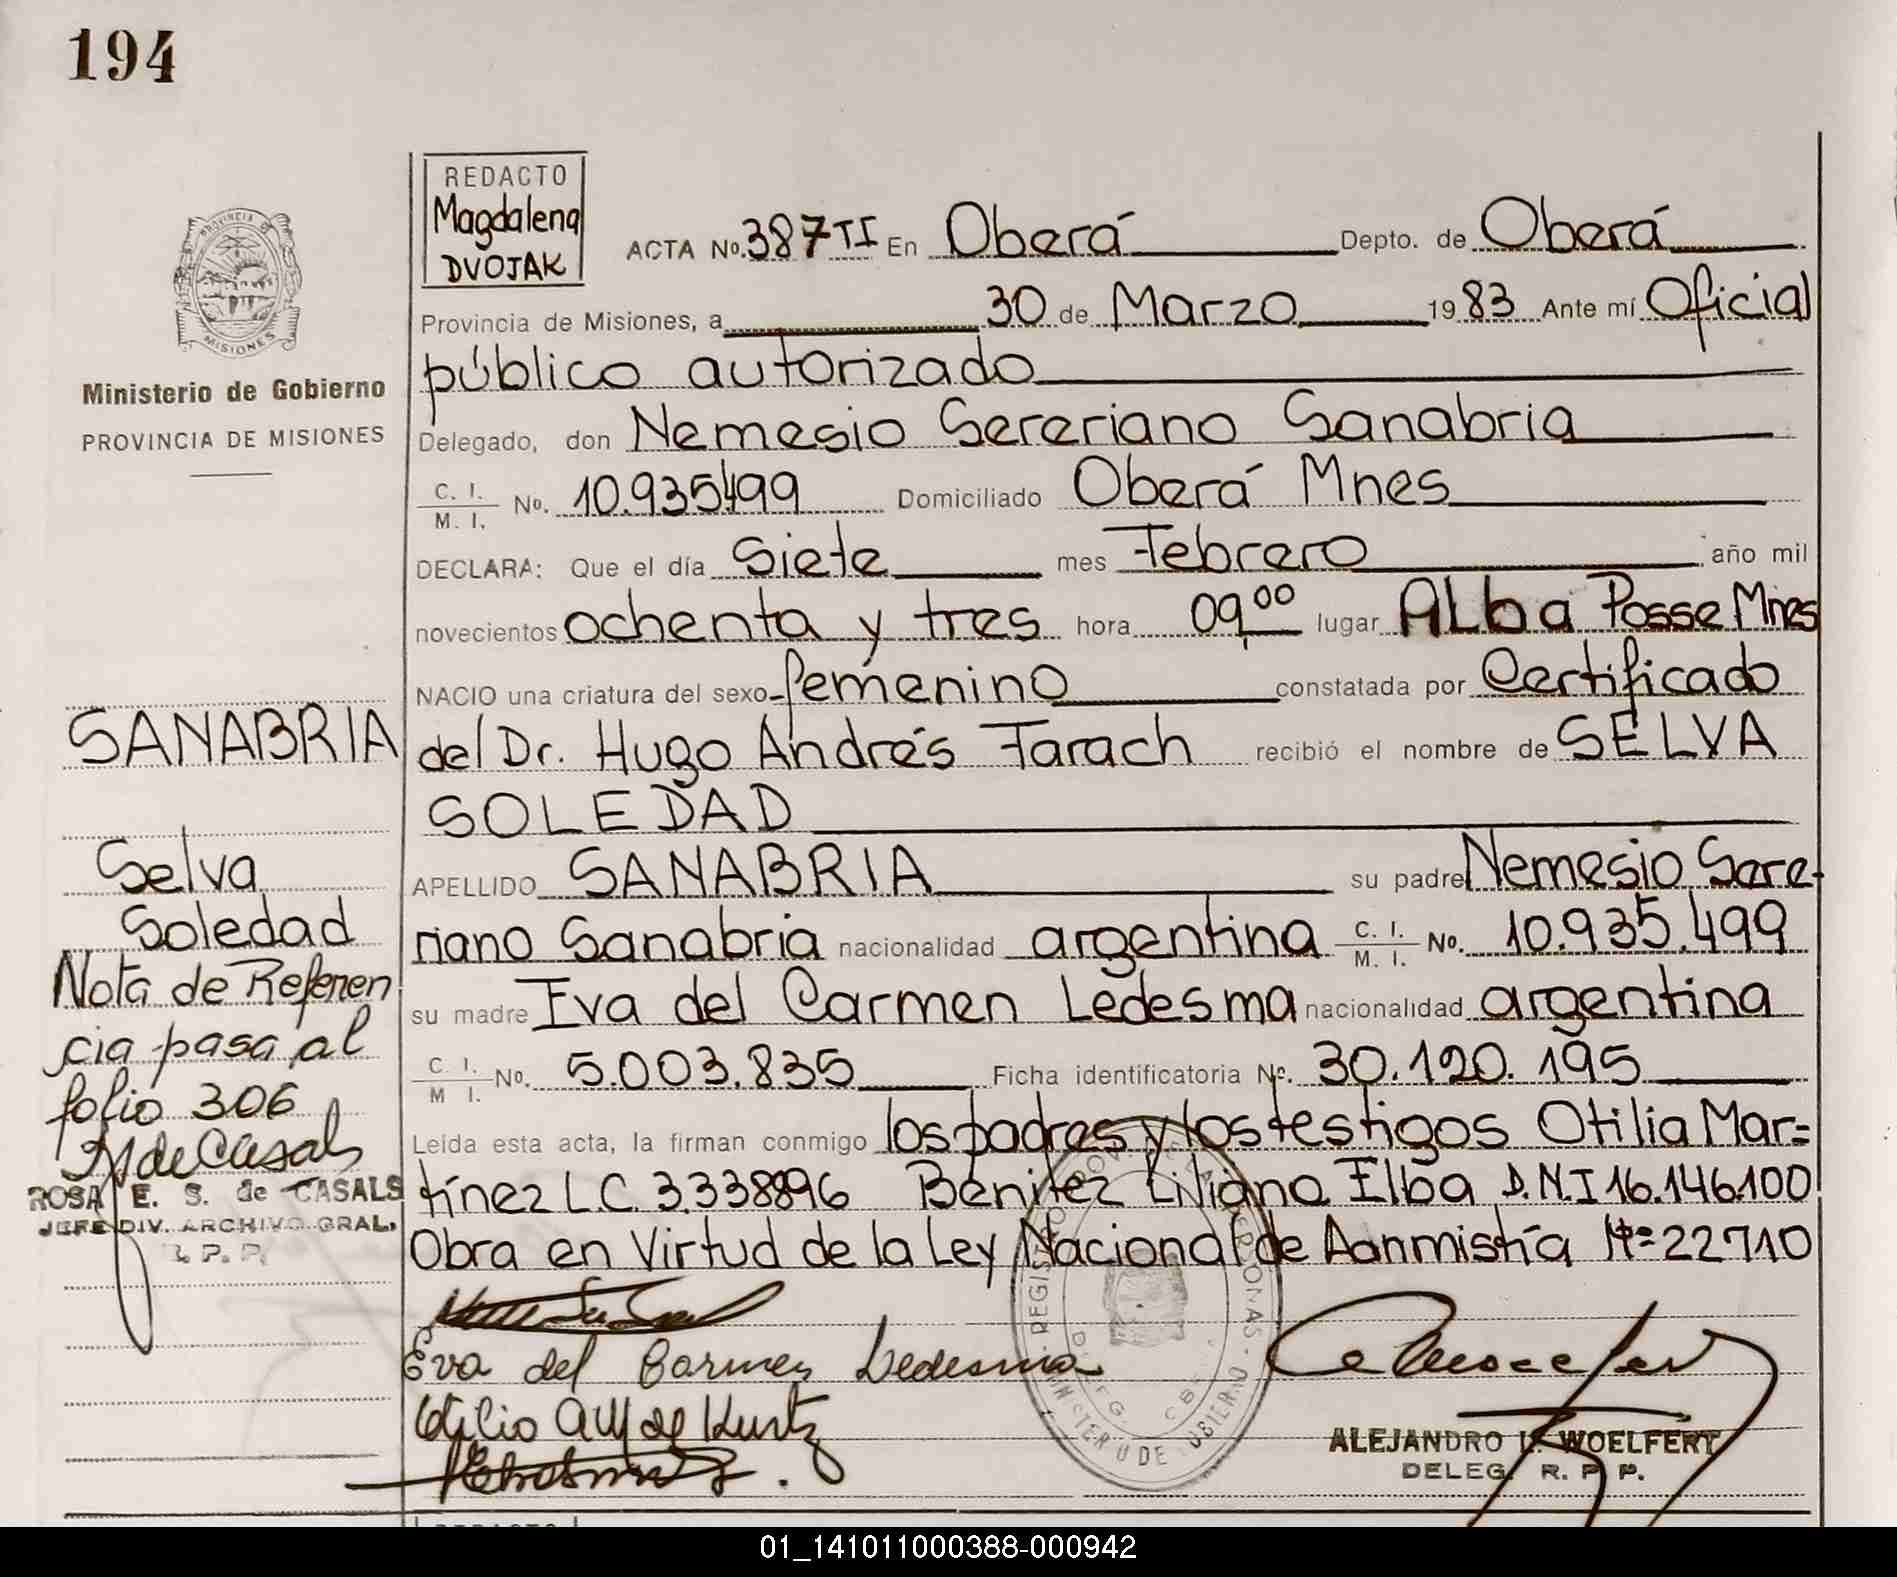 194
PROVINCIA DE
MISIONES
Ministerio de Gobierno
PROVINCIA DE MISIONES
REDACTO
Magdalena
DVOJAK
ACTA No. 387 TI En Oberá Depto. de Oberá
Provincia de Misiones, a 30 de Marzo 1983 Ante mí Oficial
público autorizado
Delegado, don Nemesio Sereriano Sanabria
C. I.
M. I. No. 10.935499 Domiciliado Oberá Mnes
DECLARA: Que el día Siete mes Febrero año mil
novecientos ochenta y tres hora 09,00 lugar ALba Posse Mnes
NACIO una criatura del sexo femenino constatada por Certificado
del Dr. Hugo Andrés Farach recibió el nombre de SELVA
SOLEDAD
APELLIDO SANABRIA su padre Nemesio Sere-
riano Sanabria nacionalidad argentina C. I.
M. I. No. 10.935.499
su madre Eva del Carmen Ledesma nacionalidad argentina
C. I.
M I. No. 5.003.835 Ficha identificatoria No. 30.120.195
Leída esta acta, la firman conmigo los padres y los testigos Otilia Mar=
tínez L.C. 3.338896 Benitez Liliana Elba D.N.I 16.146.100
Obra en Virtud de la Ley Nacional de Aanmistía Nº=22710
SANABRIA
Selva
Soledad
Nota de Referen
cia pasa al
folio 306
de Casals
ROSA E. S. de CASALS
JEFE DIV. ARCHIVO GRAL.
R. P. P.
Eva del Carmen Ledesma
ALEJANDRO WOELFERT
DELEG. R. P. P.
REDACTO
01_141011000388-000942